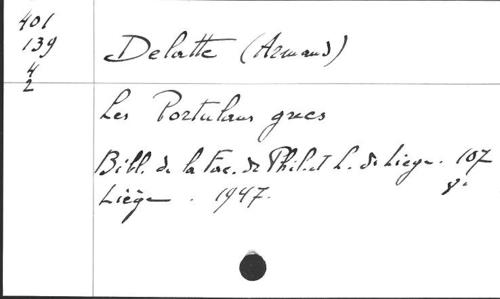 401
139
4
2
Delatte (Armand)
Les Portulans grecs
Bibl. de la Fac. de Phil. et L. de Liège. 107
Liège. 1947. 8°